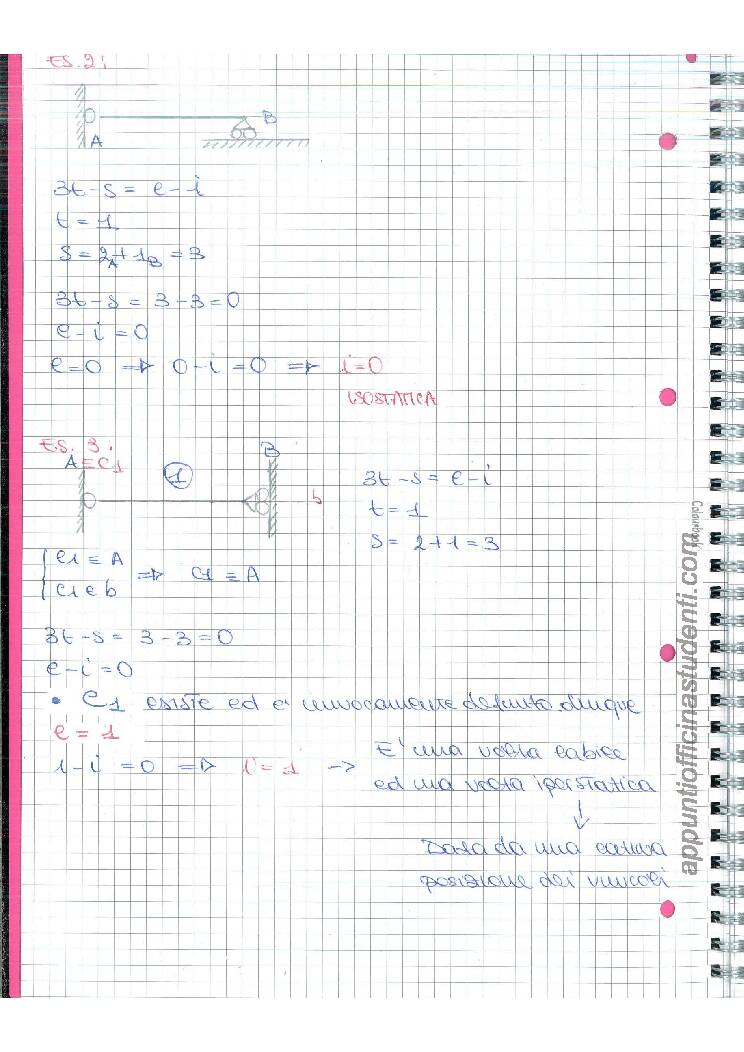 ES. 2:
A B
3t - S = e - i
t = 1
S = 2A + 1B = 3
3t - S = 3 - 3 = 0
e - i = 0
e = 0 => 0 - i = 0 => i = 0
ISOSTATICA
ES. 3:
A ≡ C1 1 B
b
3t - S = e - i
t = 1
S = 2 + 1 = 3
C1 ≡ A
C1 ∈ b => C1 ≡ A
3t - S = 3 - 3 = 0
e - i = 0
• C1 esiste ed è univocamente definito, dunque
e = 1
1 - i = 0 => i = 1 -> E' una volta labile
ed una volta iperstatica
Data da una cattiva
posizione dei vincoli
appuntiofficinastudenti.com